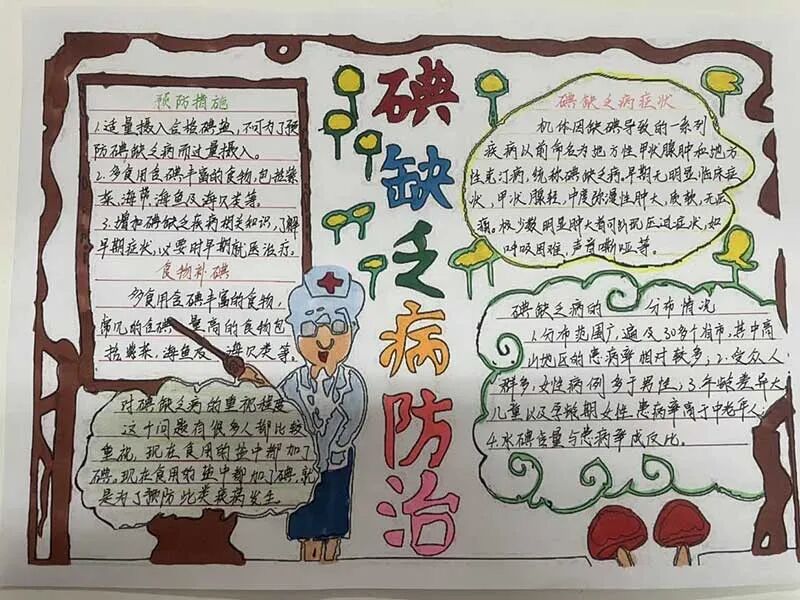 碘缺乏病防治
预防措施
1.适量摄入含括碘盐,不可为了预
防碘缺乏病而过量摄入。
2.多食用含碘丰富的食物,包括紫
菜,海带,海鱼及海贝类等。
3.增加碘缺乏疾病相关知识,了解
早期症状,必要时早期就医治疗。
食物补碘
多食用含碘丰富的食物,
常见的含碘量高的食物包
括紫菜,海鱼及海贝类等。
对碘缺乏病的重视程度
这个问题有很多人都比较
重视,现在食用的盐中都加了
碘,现在食用的盐中都加了碘,就
是为了预防此类疾病发生
碘缺乏病症状
机体因缺碘导致的一系列
疾病以前命名为地方性甲状腺肿和地方
性克汀病,统称碘缺乏病。早期无明显临床症
状,甲状腺轻,中度弥漫性肿大,质软,无压
痛。极少数明显肿大者可出现压迫症状,如
呼吸困难,声音嘶哑等。
碘缺乏病的分布情况
1.分布范围广,遍及30多个省市,其中高
山地区的患病率相对较多;2.受众人
群多,女性病例多于男性;3.年龄差异大
儿童以及孕龄期女性患病率高于中老年人;
4.水碘含量与患病率成反比。